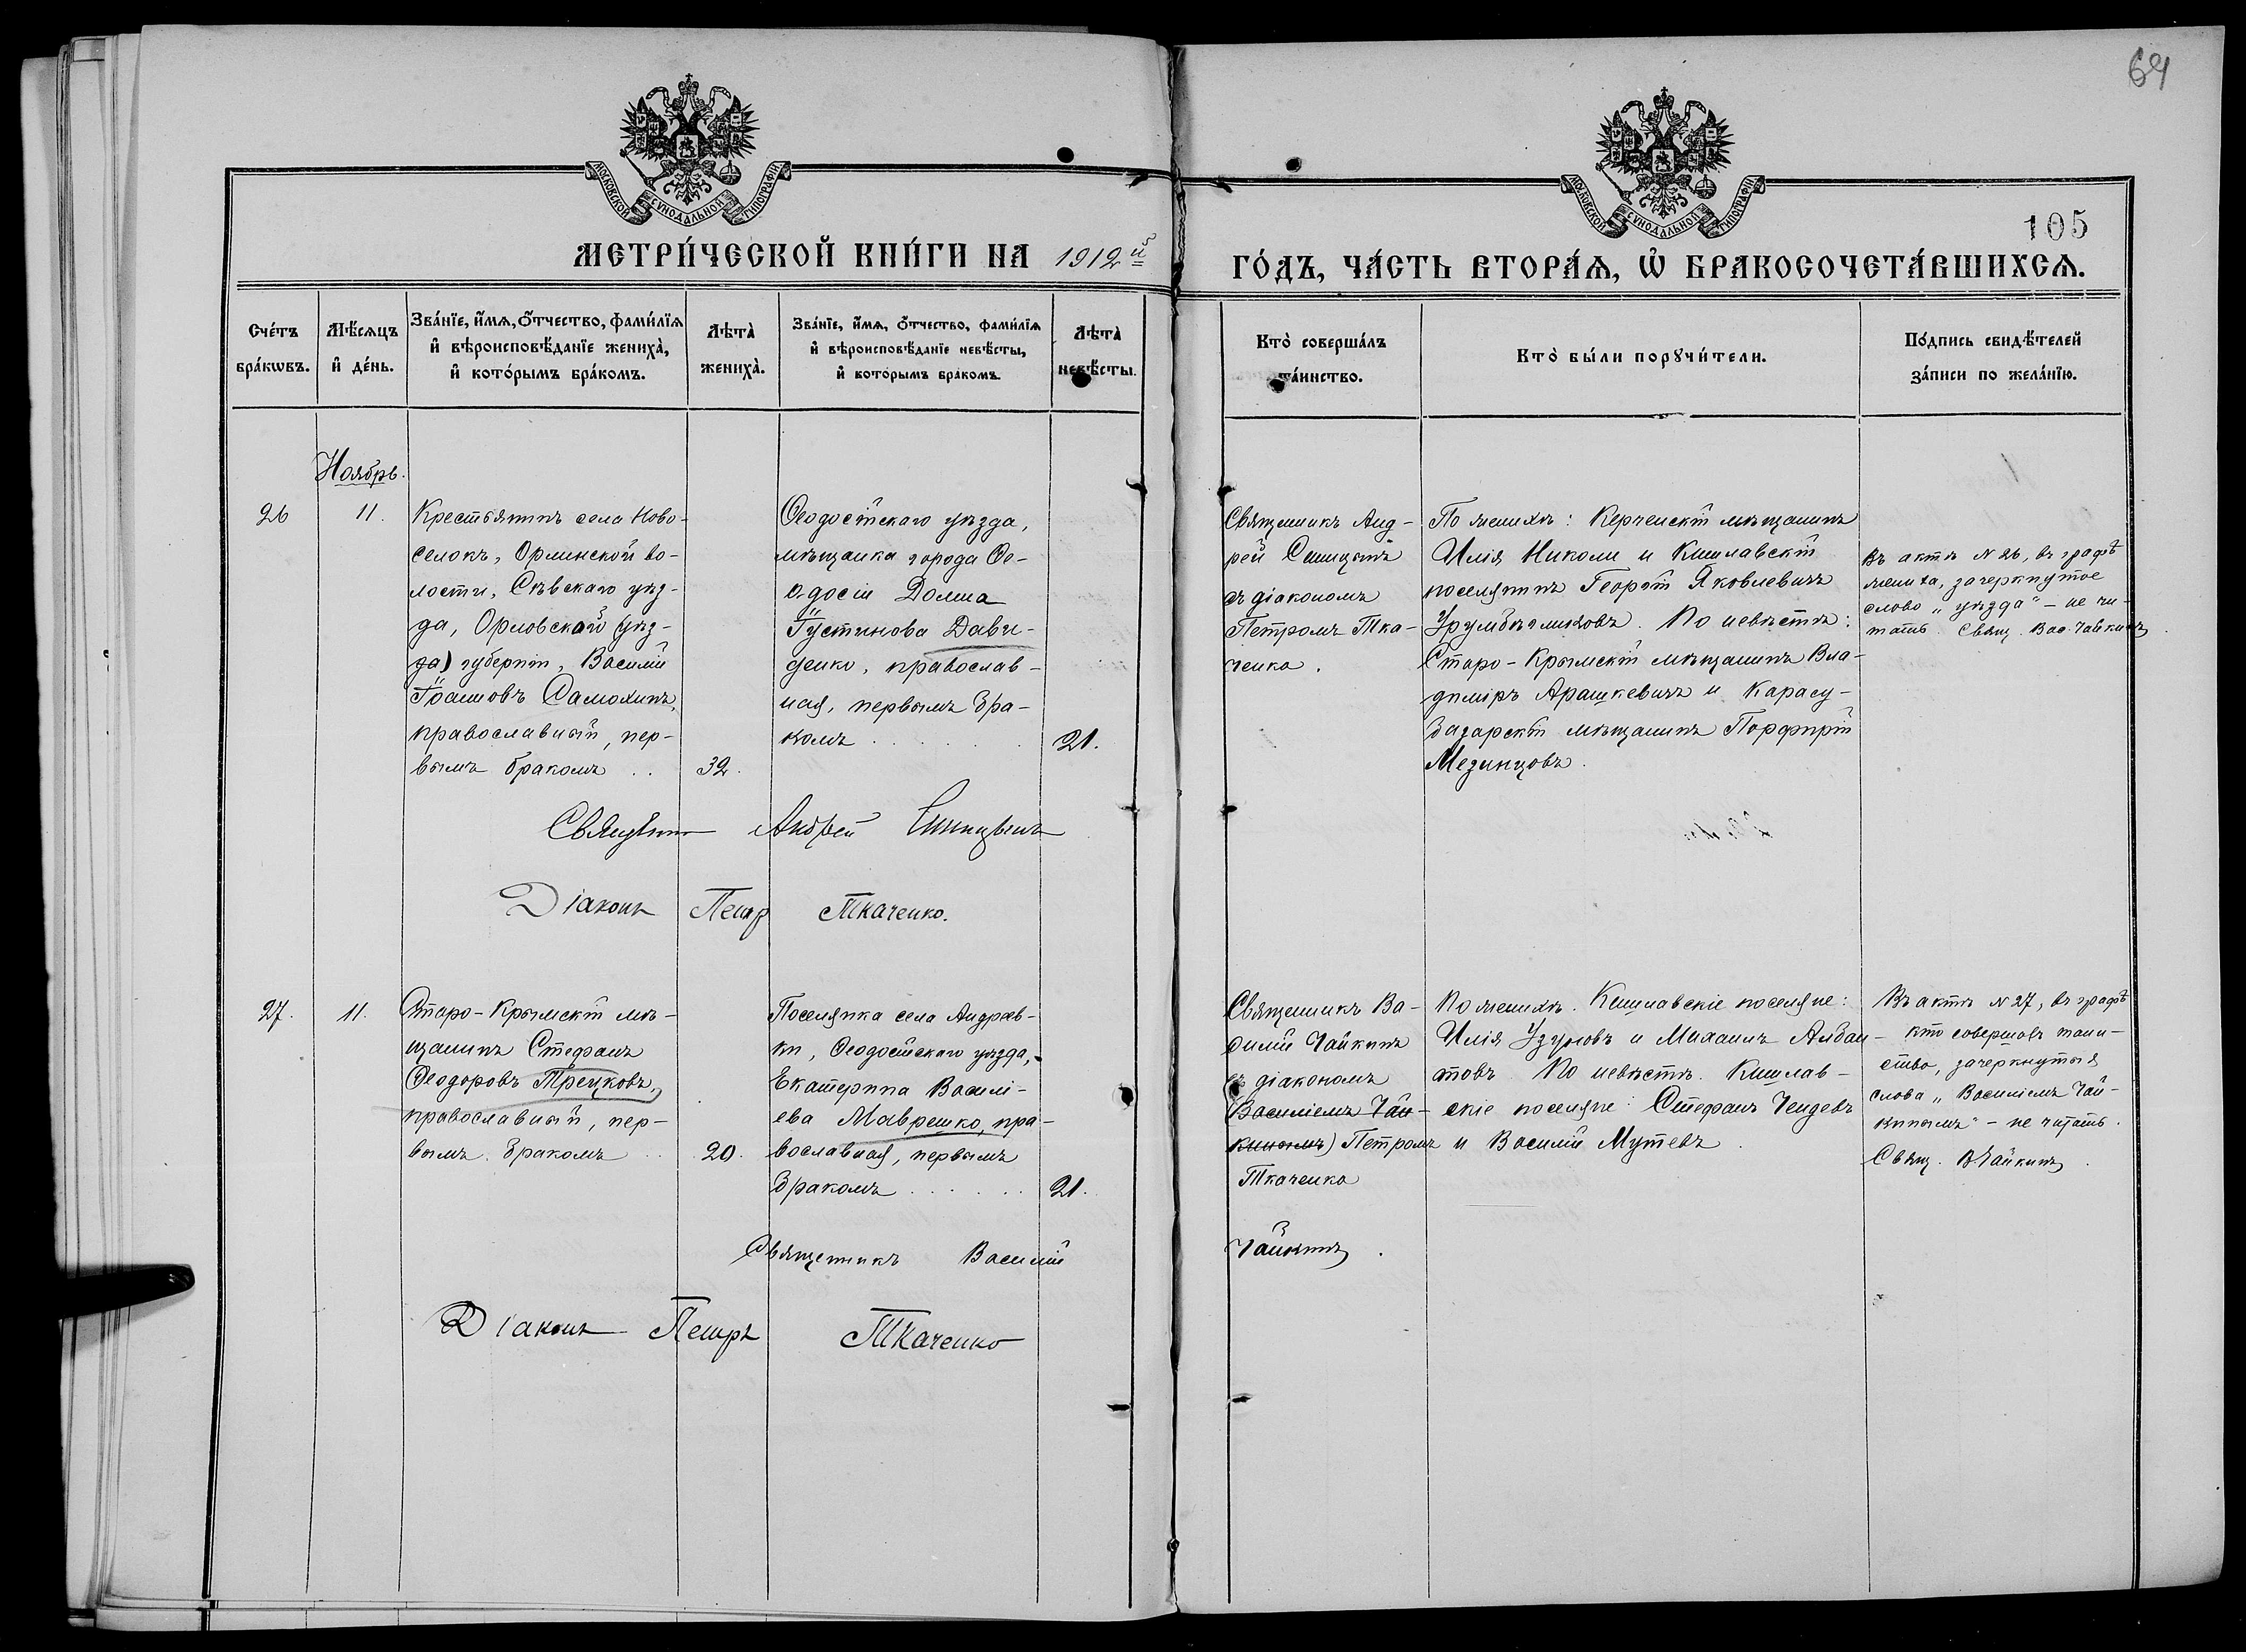 64
МОСКОВСКОЙ СѴНОДАЛЬНОЙ ТИПОГРАФІИ
МОСКОВСКОЙ СѴНОДАЛЬНОЙ ТИПОГРАФІИ
105
МЕТРИ́ЧЕСКОЙ КНИ́ГИ НА 1912й
ГО́ДЪ, ЧА́СТЬ ВТОРА́Ѧ, Ѽ БРАКОСОЧЕТА́ВШИХСѦ.
Сче́тъ
бра́кѡвъ.
Мѣ́сяцъ
и҆ де́нь.
Зва́нїе, и҆́мѧ, ѻ҆́тчество, фами́лїѧ
и҆ вѣроисповѣ́данїе жениха̀,
и҆ кото́рымъ бра́комъ.
Лѣта̀
жениха̀.
Зва́нїе, и҆́мѧ, ѻ҆́тчество, фами́лїѧ
и҆ вѣроисповѣ́данїе невѣ́сты,
и҆ кото́рымъ бра́комъ.
Лѣта̀
невѣ́сты.
Кто̀ соверша́лъ
та́инство.
Кто̀ бы́ли порꙋчи́тели.
По́дпись свидѣ́телей
за́писи по жела́нїю.
Ноябрь.
26
11.
Крестьянинъ села Ново-
селокъ, Орлинской во-
лости, Сѣвскаго уѣз-
да, Орловской (уѣз-
да) губерніи, Василій
Іоанновъ Самохинъ,
православный, пер-
вымъ бракомъ . .
32.
Ѳеодосійскаго уѣзда,
мѣщанка города Ѳе-
одосіи Домна
Іустинова Дави-
денко, православ-
ная, первымъ бра-
комъ . . . . . .
21.
Священникъ Анд-
рей Синицынъ
съ діакономъ
Петромъ Тка-
ченко.
По женихѣ: Керченскій мѣщанинъ
Илія Николи и Кишлавскій
поселянинъ Георгій Яковлевичъ
По невѣстѣ:
Старо-Крымскій мѣщанинъ Вла-
диміръ Арашкевичъ и Карасу-
базарскій мѣщанинъ Порфирій
Мезинцовъ.
Въ актѣ №26, въ графѣ
жениха, зачеркнутое
слово „уѣзда“ – не чи-
тать. Свящ. Вас. Чайкинъ.
Священникъ Андрей Синицынъ
Діаконъ Петръ Ткаченко.
27.
11.
Старо-Крымскій мѣ-
щанинъ Стефанъ
Ѳеодоровъ Трецковъ,
православный, пер-
вымъ бракомъ . .
20.
Поселянка села Андреев-
ки, Ѳеодосійскаго уѣзда,
Екатерина Василі-
ева Маврешко, пра-
вославная, первымъ
бракомъ . . . . . .
21.
Священникъ Ва-
силій Чайкинъ
съ діакономъ
(Василіемъ Чай-
кинымъ) Петромъ
Ткаченко
По женихѣ. Кишлавскіе поселяне:
Илія Узуновъ и Михаилъ Албан-
товъ По невѣстѣ. Кишлав-
скіе поселяне: Стефанъ Чендевъ
и Василій Мутевъ.
Въ актѣ №27, въ графѣ
кто совершалъ таин-
ство, зачеркнутыя
слова „Василіемъ Чай-
кинымъ“ – не читать.
Свящ. В Чайкинъ.
Священникъ Василій Чайкинъ.
Діаконъ Петръ Ткаченко